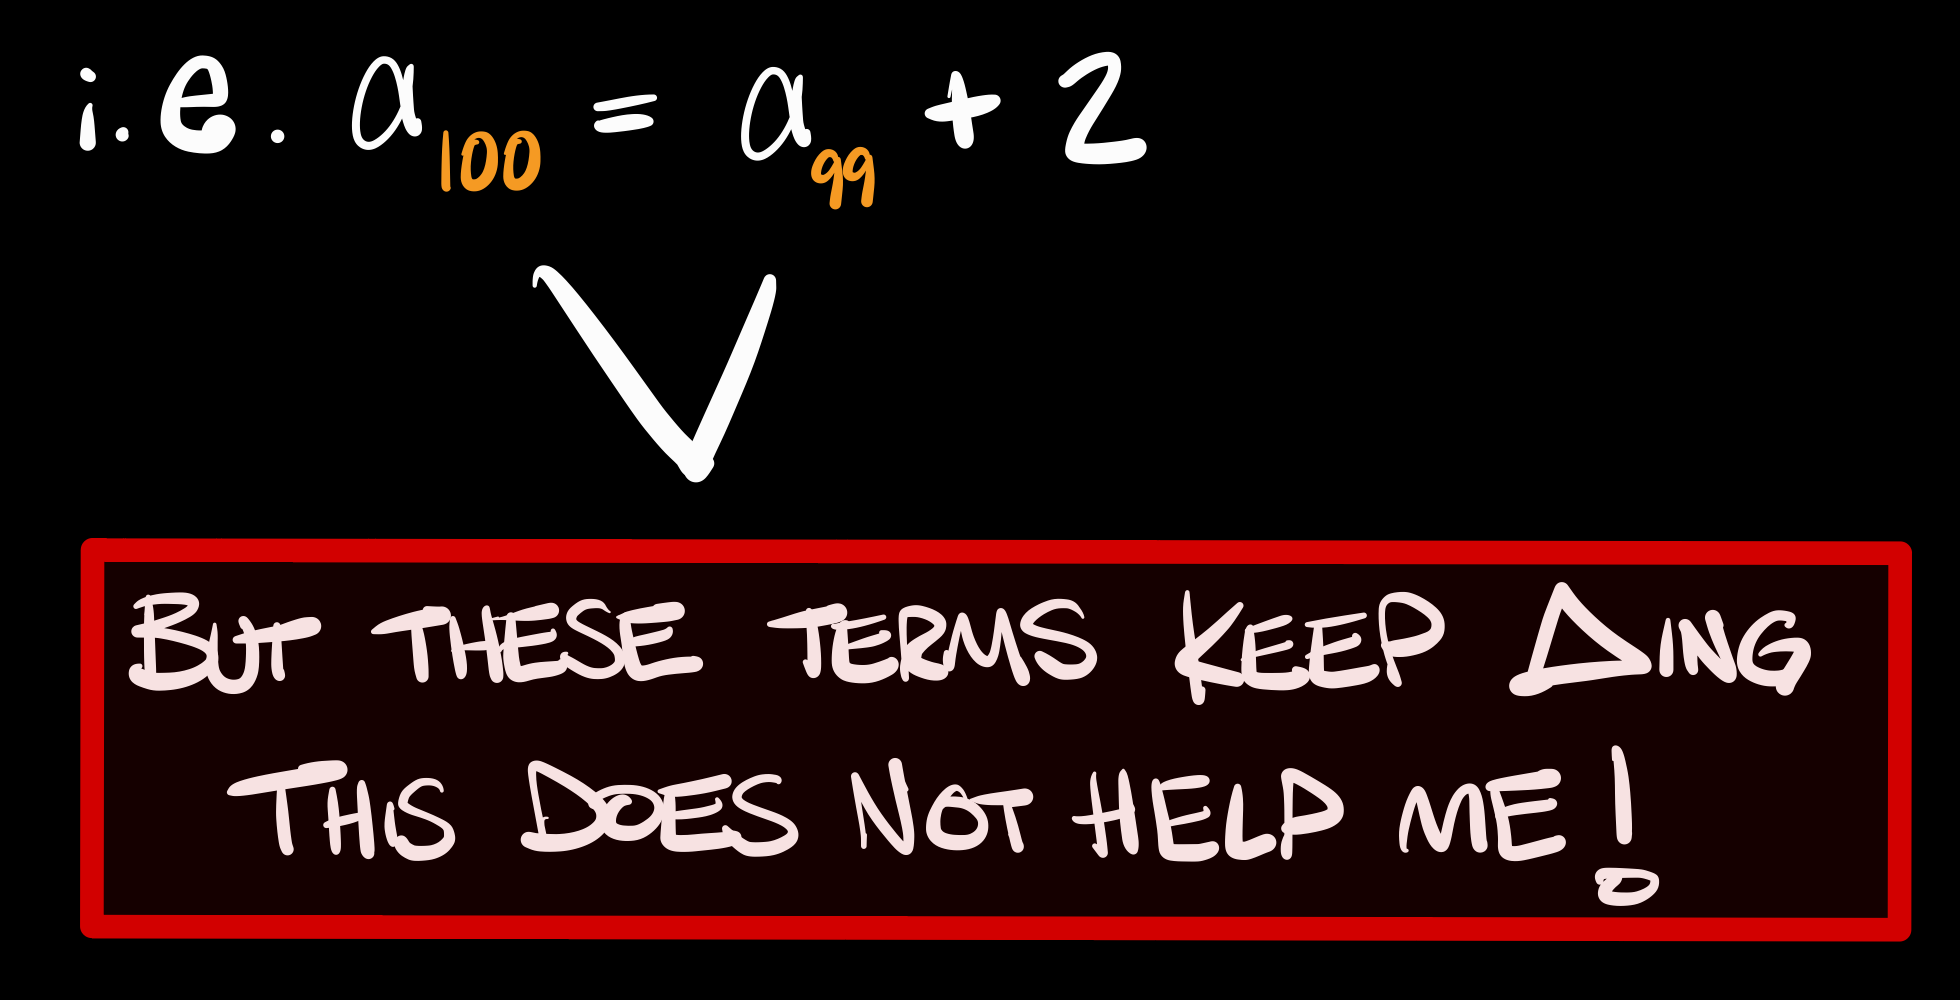 i.e. a₁₀₀ = a₉₉ + 2
BUT THESE TERMS KEEP ΔING
THIS DOES NOT HELP ME!